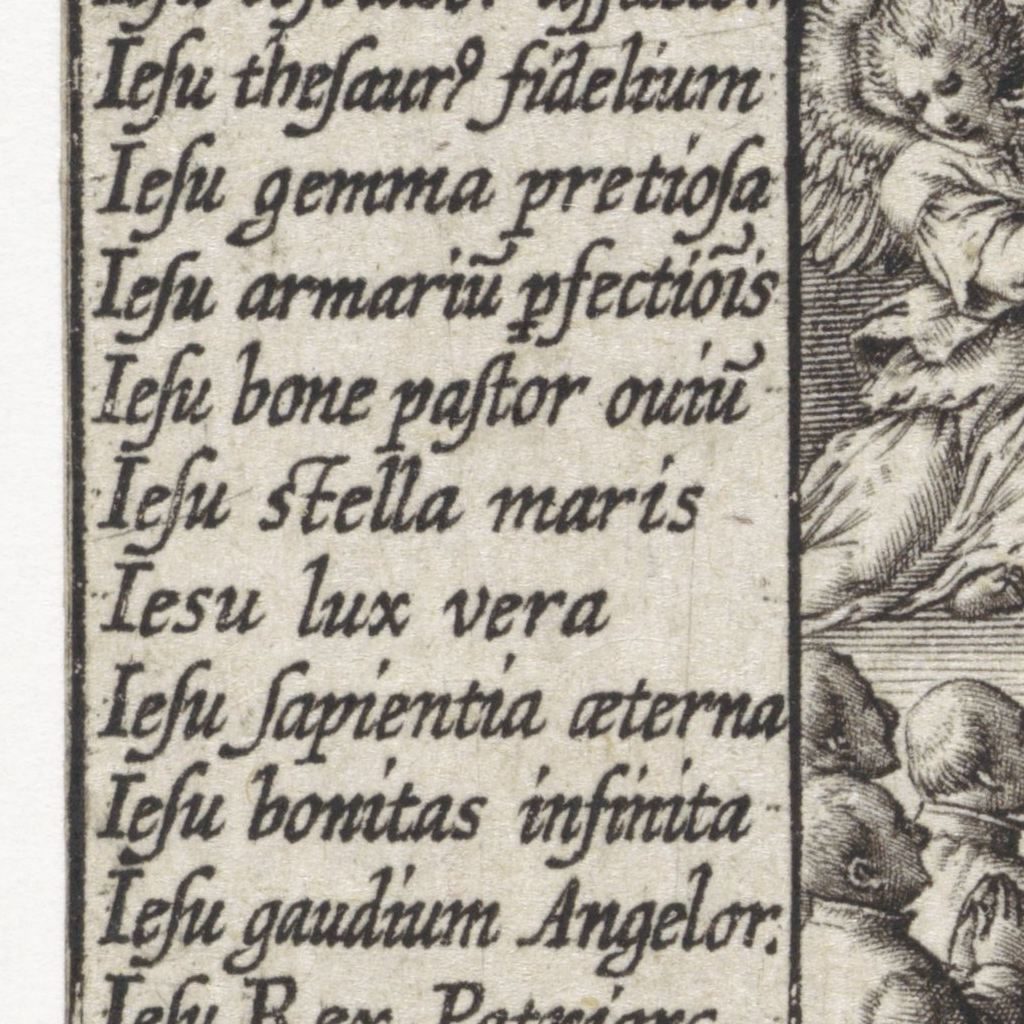 Iesu
Ieſu theſaurꝰ fidelium
Ieſu gemma pretioſa
Ieſu armariũ ꝑfectiõis
Ieſu bone paſtor ouiũ
Ieſu stella maris
Iesu lux vera
Ieſu ſapientia æterna
Ieſu bonitas infinita
Ieſu gaudium Angelor.
Ieſu Rex Patriarc